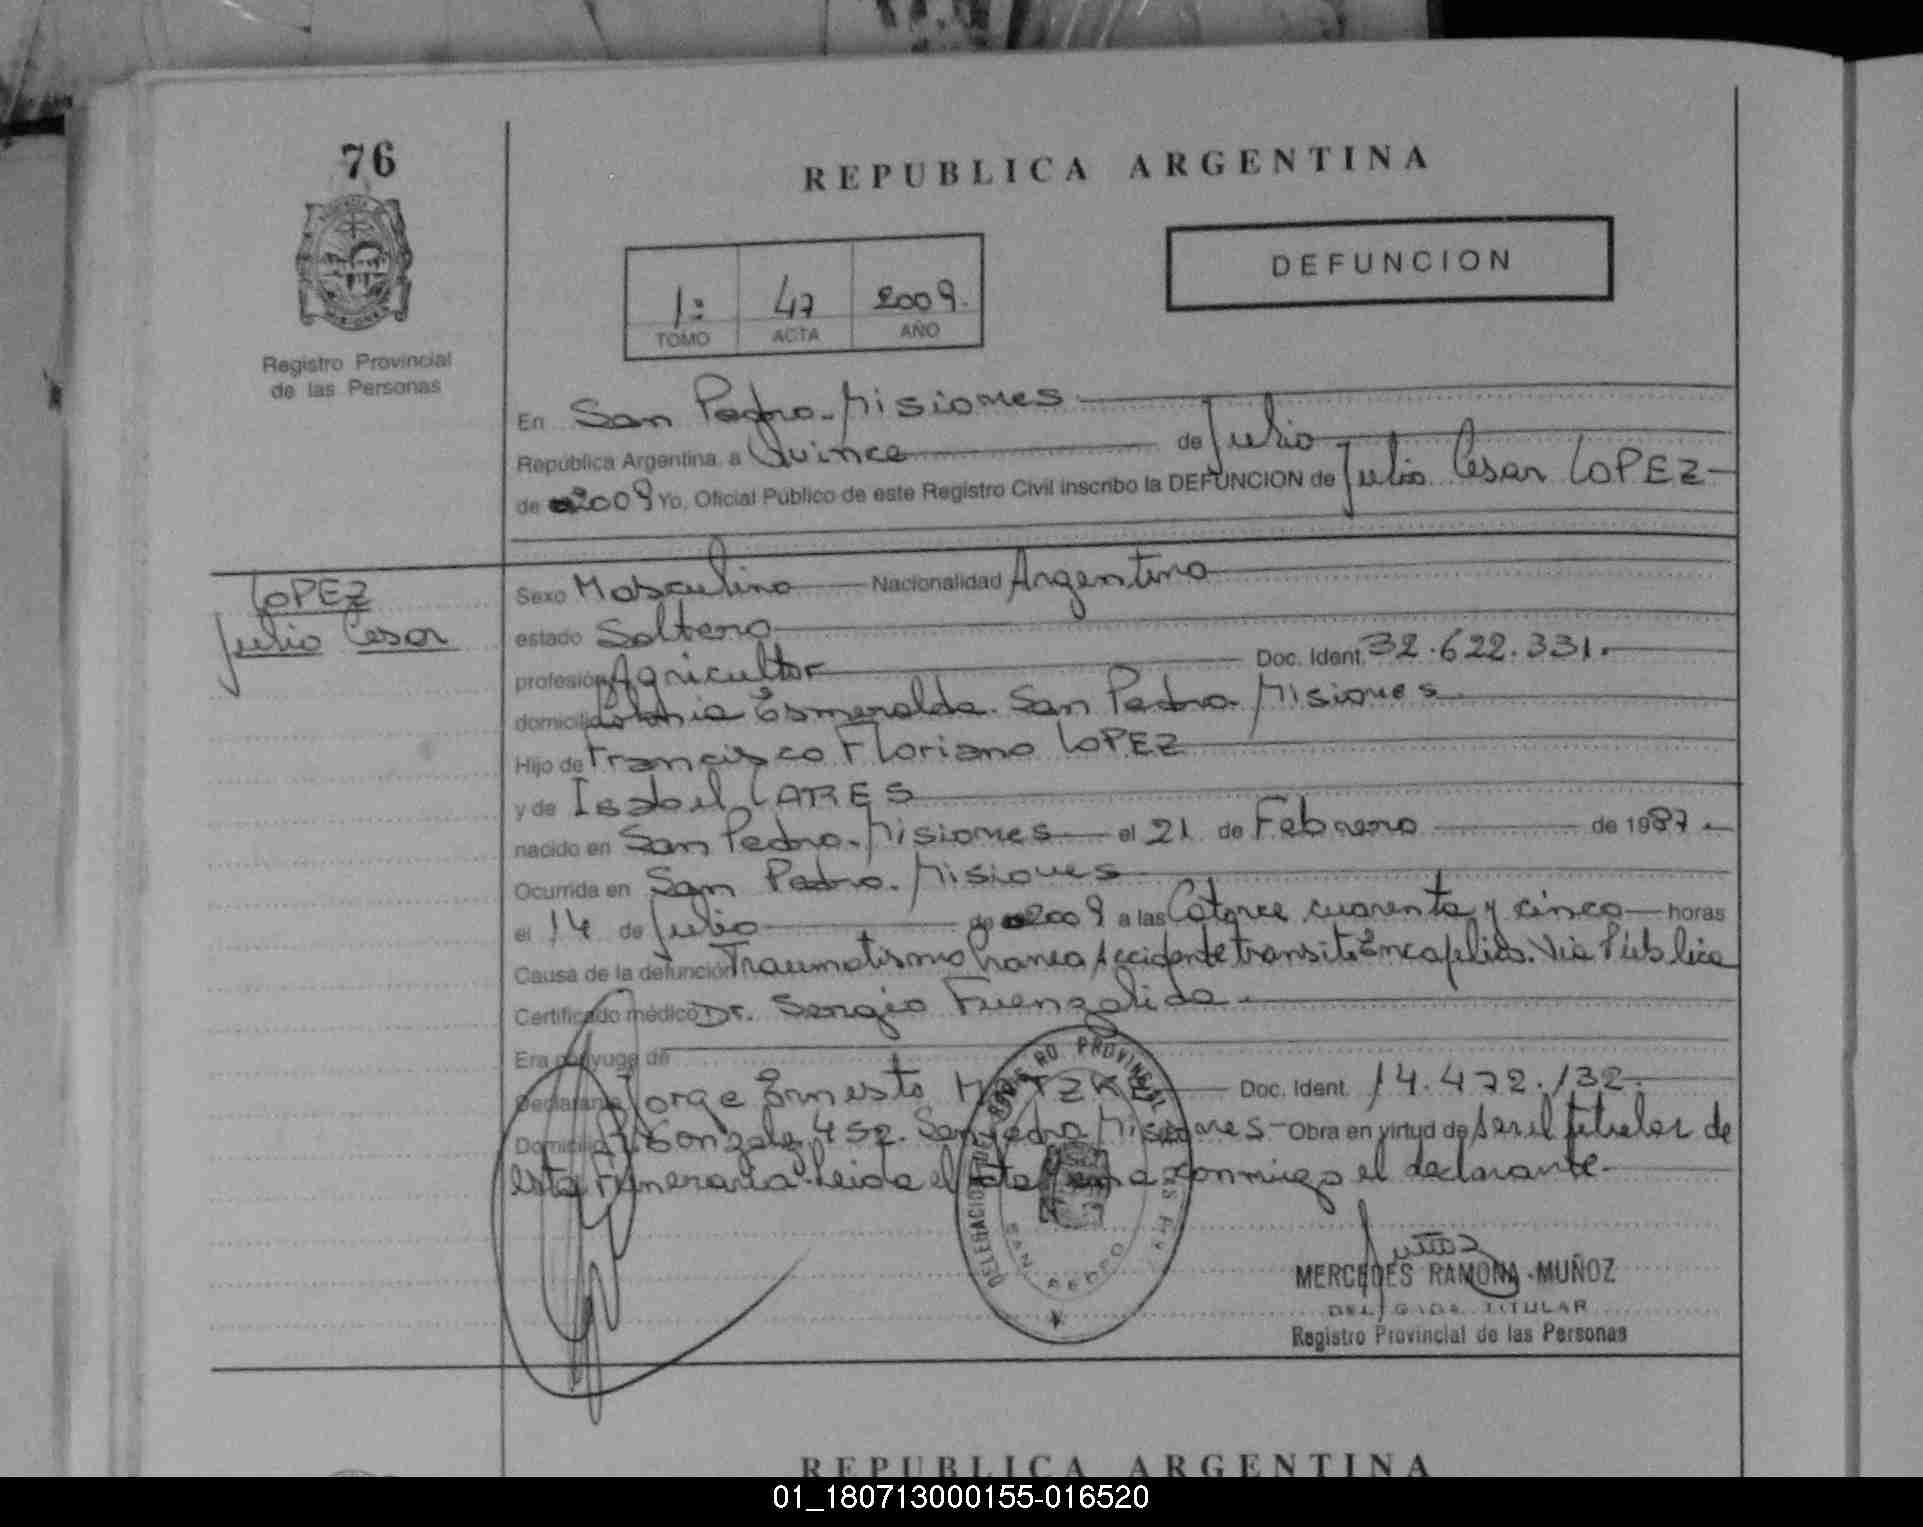 76
REPUBLICA ARGENTINA
DEFUNCION
1º 47 2009.
TOMO ACTA AÑO
Registro Provincial
de las Personas
En San Pedro - Misiones
República Argentina, a Quince de Julio
de 2009 Yo, Oficial Público de este Registro Civil inscribo la DEFUNCION de Julio Cesar LOPEZ
LOPEZ
Julio Cesar
Sexo Masculino Nacionalidad Argentina
estado Soltero
profesión Agricultor Doc. Ident. 32.622.331.
domicilio Colonia Esmeralda. San Pedro. Misiones
Hijo de Francisco Floriano LOPEZ
y de Isabel CARES
nacido en San Pedro. Misiones el 21 de Febrero de 1987
Ocurrida en San Pedro. Misiones
el 14 de Julio de 2009 a las Catorce cuarenta y cinco horas
Causa de la defunción Traumatismo Accidente transito Vía Pública
Certificado médico Dr. Sergio Fuenzalida
Era conyuge de
Declarante Jorge Ernesto Doc. Ident. 14.472.132.
Domicilio Gonzalez 452. San Pedro Misiones - Obra en virtud de ser el titular de
esta Funeraria. Leida el acta firma conmigo el declarante
REGISTRO PROVINCIAL
DELEGACION
SAN PEDRO
MERCEDES RAMONA MUÑOZ
DELEGADA TITULAR
Registro Provincial de las Personas
REPUBLICA ARGENTINA
01_180713000155-016520